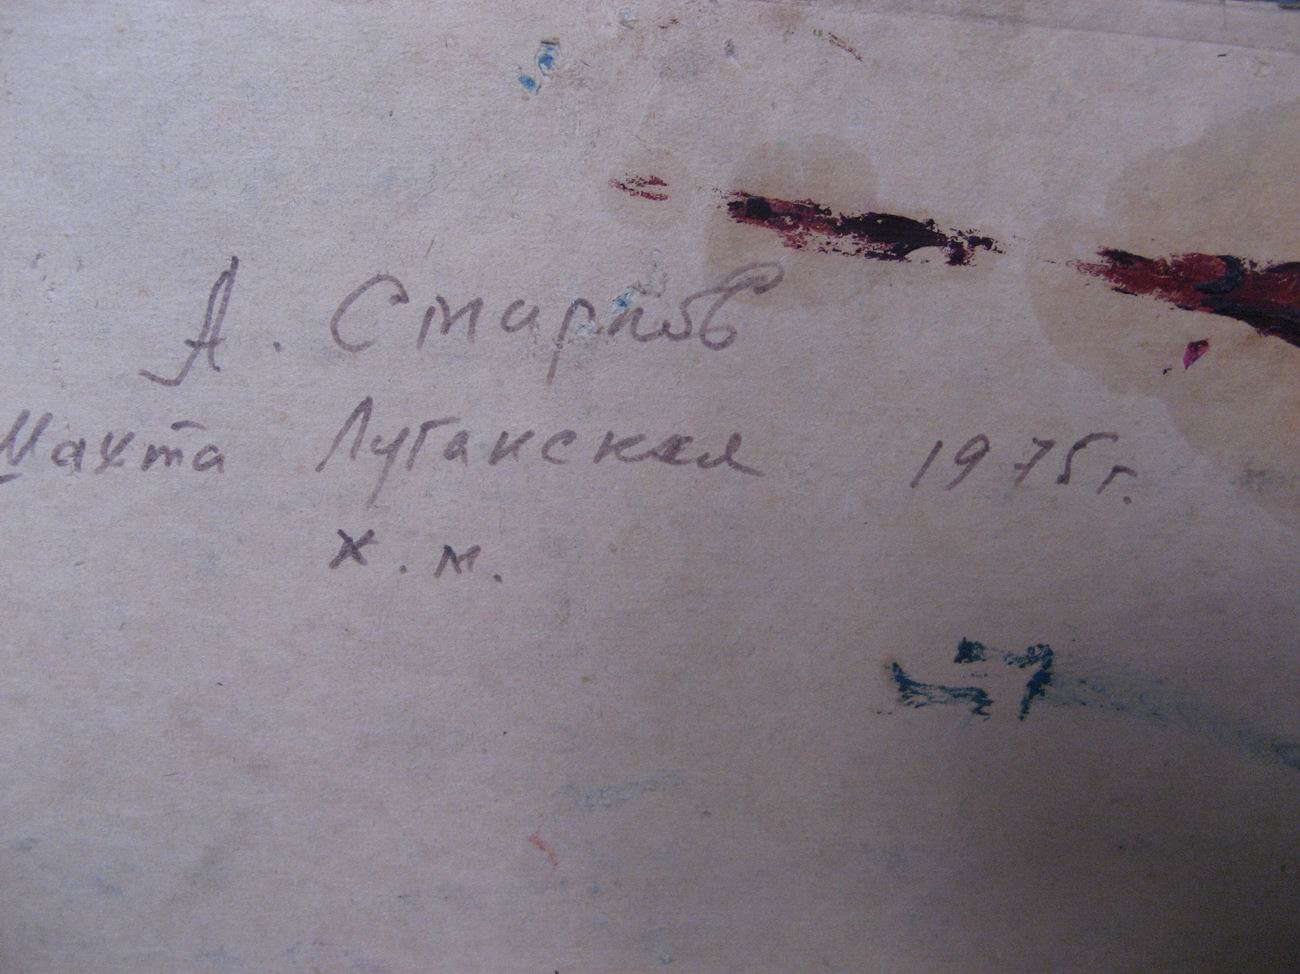 А. Старков
Шахта Луганская 1975г.
х. м.